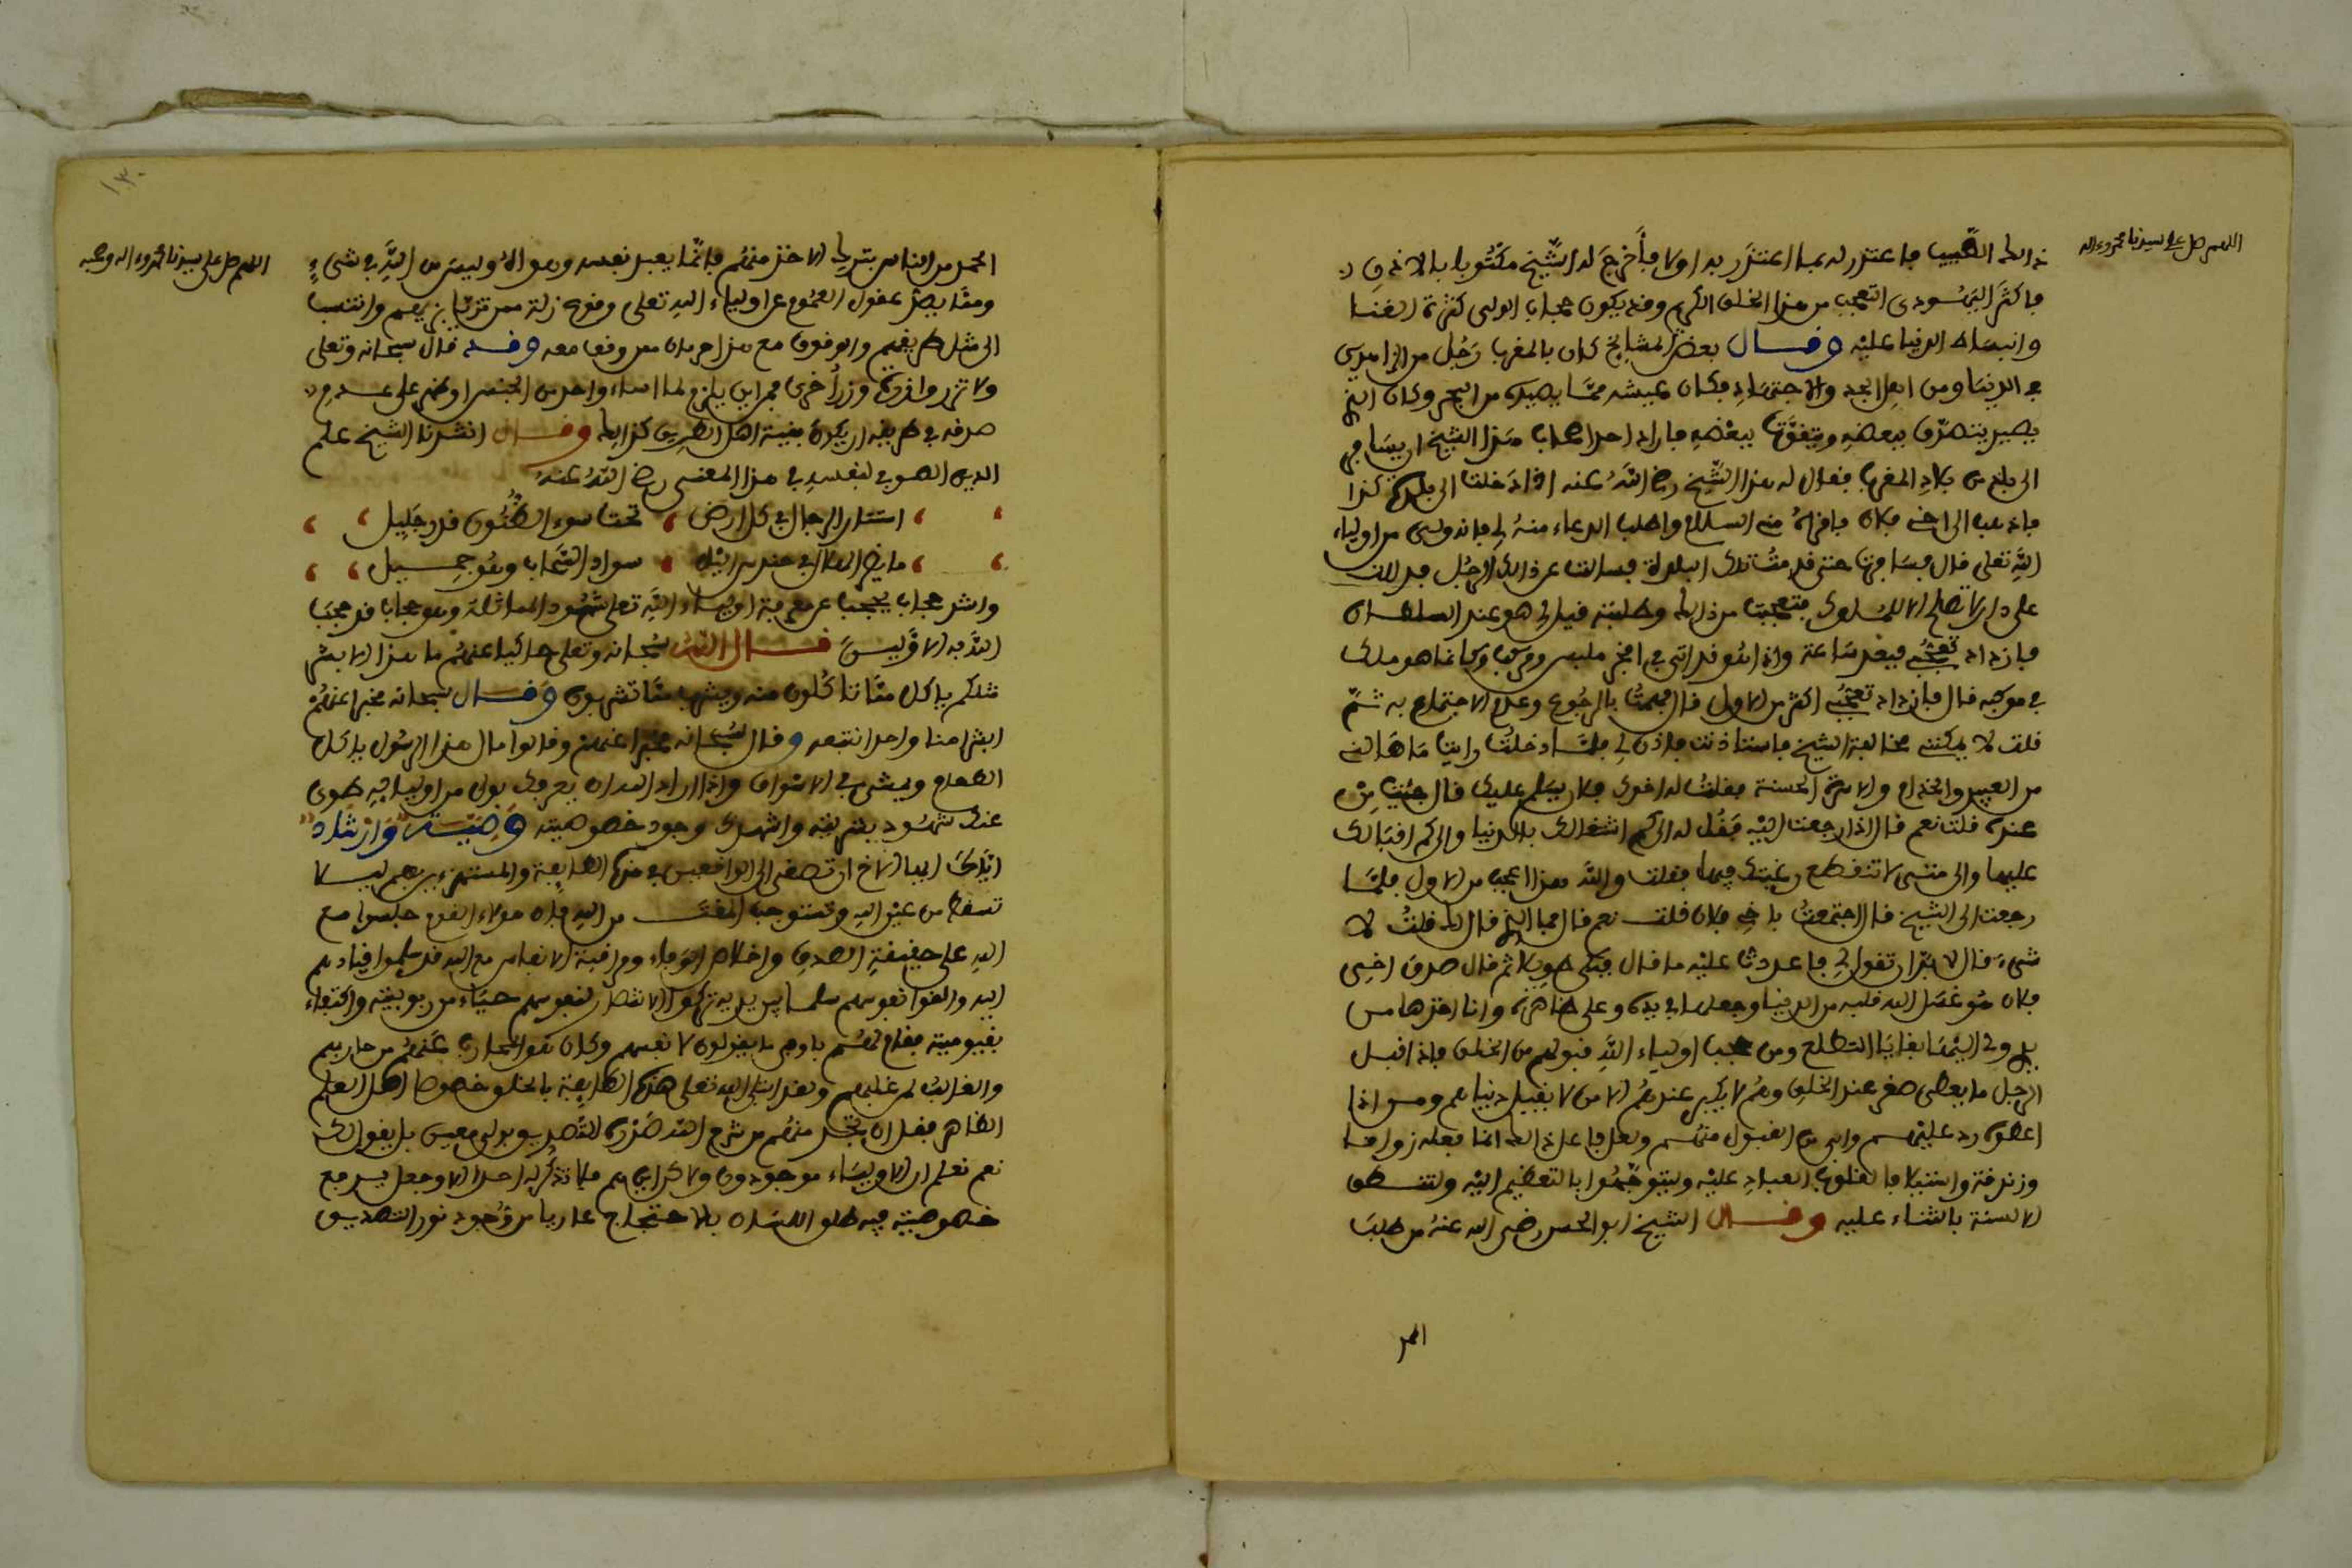 اللهم صل على سيدنا محمد وءاله
ذالك الطبيب فاعتذر له بما اعتذر به اولا فأخرج له الشيخ مكتوبا بالاذن
فاكثر اليهودى التعجب من هذا الخلق الكريم وقد يكون حجاب الولى كثرة الغنا
وانبساط الدنيا عليه وقال بعض المشايخ كان بالمغرب رجل من الزاهدين
في الدنيا ومن اهل الجد والاجتهاد وكان عيشه مما يصيده من البحر وكان الذى
يصيد يتصدق ببعضه ويتقوت ببعضه فاراد احد اصحاب هذا الشيخ ان يسافر
الى بلد من بلاد المغرب فقال له هذا الشيخ رضي الله عنه اذا دخلت الى بلدة كذا
فاذهب الى اخى فلان فاقرأه منى السلام واطلب الدعاء منه لى فانه ولى من اولياء
الله تعالى قال فسافرت حتى قدمت تلك البلدة فسالت عن ذالك الرجل فدللت
على دار لا تصلح الا للملوك فتعجبت من ذالك وطلبته فقيل لى هو عند السلطان
فازداد تعجبي فبعد ساعة واذا هو قد اتى في افخر ملبس ومركب وكانما هو ملك
في موكبه قال فازداد تعجبي اكثر من الاول قال فهممت بالرجوع وعدم الاجتماع به ثم
قلت لا يمكننى مخالفة الشيخ فاستاذنت فاذن لى فلما دخلت رايت ما هالنى
من العبيد والخدام والشارة الحسنة فقلت له اخوك فلان يسلم عليك قال جئت من
عنده قلت نعم قال اذا رجعت اليه فقل له الى كم اشتغالك بالدنيا والى كم اقبالك
عليها والى متى لا تنقطع رغبتك فيها فقلت والله هذا اعجب من الاول فلما
رجعت الى الشيخ قال اجتمعت باخى فلان قلت نعم قال فما الذى قال لك قلت لا
شىء قال لا بد ان تقول لى فاعدت عليه ما قال فبكى طويلا ثم قال صدق اخى
فلان هو غسل الله قلبه من الدنيا وجعلها في يده وعلى ظاهره وانا اخذها من
يدى ولى اليها بقايا التطلع ومن حجب اولياء الله قبولهم من الخلق فاذا اقبل
الرجل ما يعطى صغر عند الخلق وهم لا يكبر عندهم الا من لا يقبل دنياهم ومن اذا
اعطوه رد عليهم وابى من القبول منهم ولعل فاعل ذالك انما فعله زواقا
وزندقة واستيلافا لقلوب العباد عليه وليتوجهوا بالتعظيم اليه ولتنطق
الالسنة بالثناء عليه وقال الشيخ ابو الحسن رضى الله عنه من طلب
الحمد
١٣٠
اللهم صل على سيدنا محمد وءاله وصحبه
الحمد من الناس بترك الاخذ منهم فانما يعبد نفسه وهواه وليس من الله في شىء
ومما يصد عقول العموم عن اولياء الله تعلى وقوع زلة ممن تزيا بزيهم وانتسب
الى مثل طريقهم والوقوف مع هذا حرمان ممن وقف معه وقد قال سبحانه وتعلى
ولا تزر وازرة وزر أخرى فمن اين يلزم لما اساء واحد من الجنس او ظهر على عدم
صدقه في طريقه ان يكون بقية اهل الطريق كذالك وقال انشدنا الشيخ علم
الدين الصوفي لنفسه في هذا المعنى رضي الله عنه
استتار الرجال في كل ارض تحت سوء الظنون قدر جليل
ما يضر الهلال في حندس الليل سواد السحاب وهو جميل
واشد حجاب يحجب عن معرفة اولياء الله تعلى شهود المماثلة وهو حجاب قد حجب
الله به الاولين قال الله سبحانه وتعلى حاكيا عنهم ما هذا الا بشر
مثلكم ياكل مما تاكلون منه ويشرب مما تشربون وقال سبحانه مخبرا عنهم
ابشرا منا واحدا نتبعه وقال سبحانه مخبرا عنهم وقالوا مال هذا الرسول ياكل
الطعام ويمشى في الاسواق واذا اراد الله ان يعرفك بولى من اوليائه طوى
عنك شهود بشريته واشهدك وجود خصوصيته وصية وارشاد
اياك ايها الاخ ان تصغى الى الواقعين في هذه الطايفة والمستهزءين بهم ليلا
تسقط من عين الله وتستوجب المقت من الله فان هؤلاء القوم جلسوا مع
الله على حقيقة الصدق واخلاص الوفاء ومراقبة الانفاس مع الله قد سلموا قيادهم
اليه والقوا نفوسهم سلما بين يديه تركوا الانتصار لنفوسهم حياء من ربوبيته واكتفاء
بقيوميته فقام لهم باوفى ما يقومون لانفسهم وكان هو المحارب عنهم من حاربهم
والغالب لمن غالبهم ولقد ابتلى الله تعلى هذه الطايفة بالخلق خصوصا اهل العلم
الظاهر فقل ان تجد منهم من شرح الله صدره للتصديق بولى معين بل يقول لك
نعم نعلم ان الاولياء موجودون ولاكن اين هم فلا تذكر له احدا الا وجعل يدفع
خصوصيته فيه طلق اللسان بالاحتجاج عاريا من وجود نور التصديق